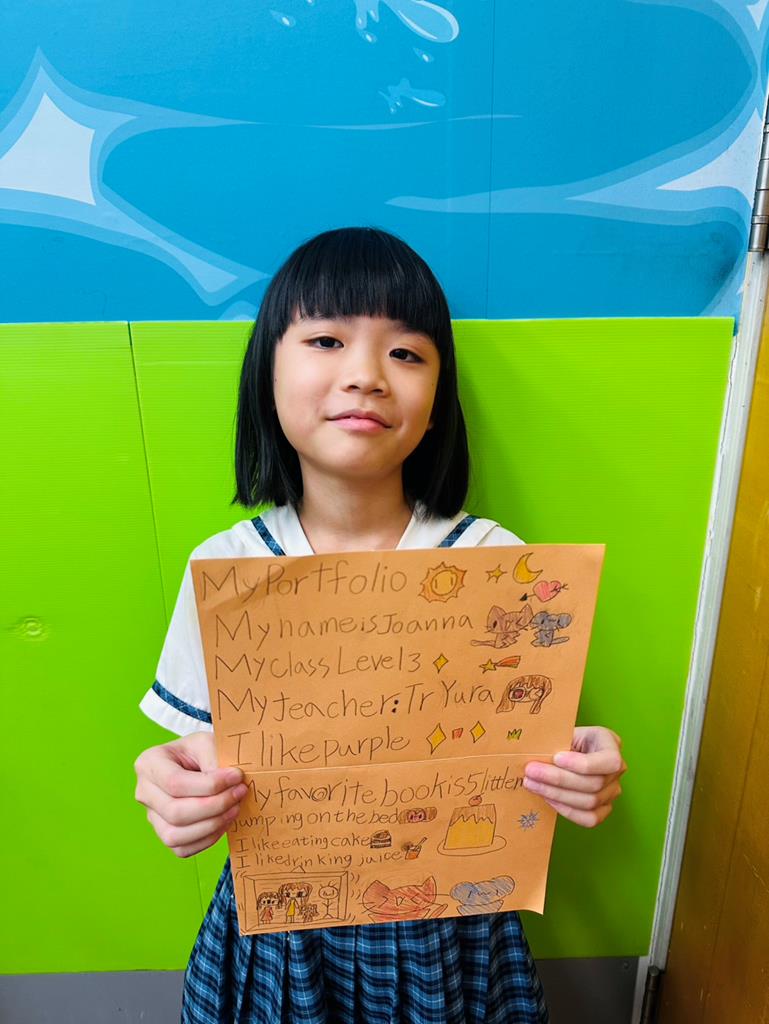 My Portfolio
My name is Joanna
My class Level 3
My teacher: Tr Yura
I like purple
My favorite book is 5 little
jumping on the bed
I like eating cake
I like drinking juice